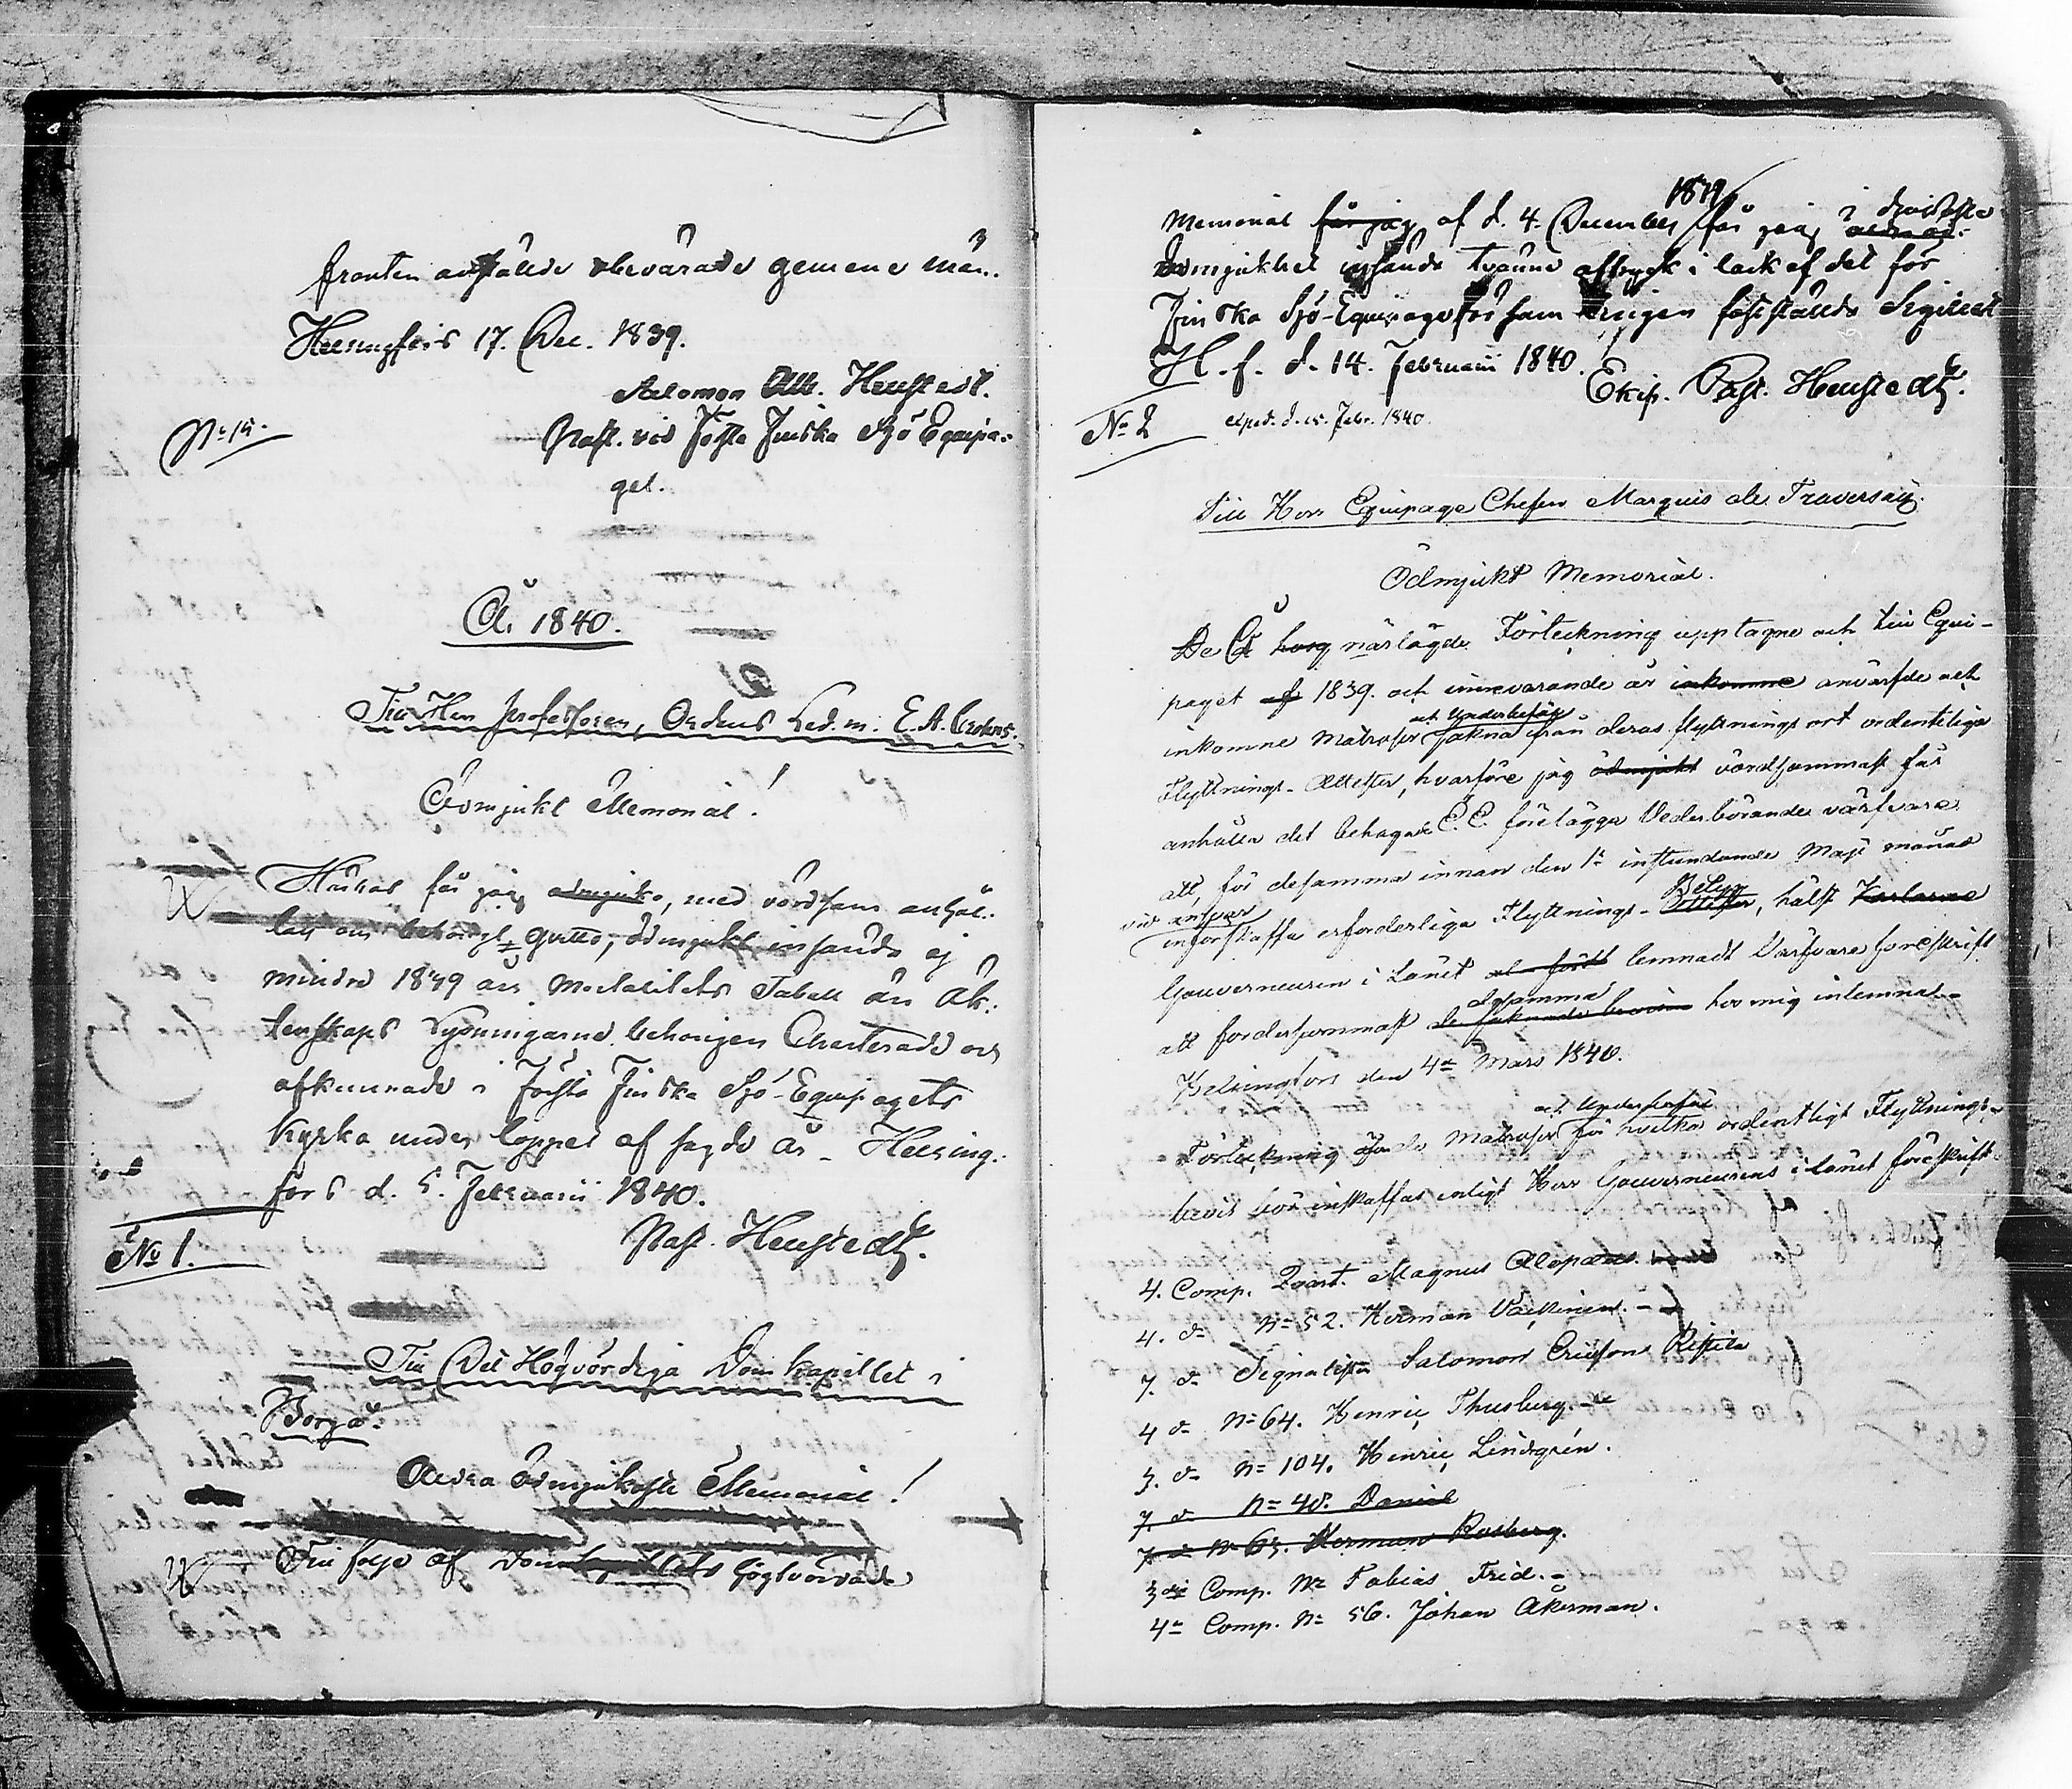 fronten anstälde obevärade gemene män.
Helsingfors 17. Dec. 1839.
Salomon Alb. Henstedt.
No 14.
Past. vid Första Finska Sjö Equipa-
get.
År 1840.
Till Herr Professoren, Ordens Led. m. E. A.
Ödmjukt Memorial!
Härhos får jag ödmjuks, med vördsam anhål-
lan om gunst, ödmjukt insända ej
mindre 1839 års Mortalitets Tabell än Äk-
tenskaps Lysningarne behörigen Charterade och
afkunnade i Första Finska Sjö-Equipagets
Kyrka under loppet af sagde år. Helsing-
fors d. 5. Februarii 1840.
Past. Henstedt.
No 1.
Till Det Högvördiga Domkapitlet i
Borgå.
Allra ödmjukaste Memorial!
Till följe af Domkapitlets högtvördade
Memorial får jag af d. 4. December 1839 får jag i djupaste
ödmjukhet insända tvänne aftryck i lack af det för
Finska Sjö-Equipage församlingen fastställde Sigillet
H.f. d. 14. Februarii 1840.
Ekip. Past. Henstedt.
No 2
exped. d. 15. Febr. 1840.
Till Herr Equipage Chefen Marquis de Traversay.
Ödmjukt Memorial.
De å hosg närlagde Förteckning upptagne och till Equi-
paget af 1839. och innevarande år inkomne anvärfde och
inkomne Matroser och Underbefäl sakna från deras flyttnings ort ordentliga
Flyttnings-Attester, hvarföre jag ödmjukt vördsammast får
anhålla det behagade E. E. förelägga Vederbörande värfvare
att, för desamma innan den 1e instundande Maji månad
vid ansvar införskaffa erforderliga Flyttnings-Attester Betyg, hälst
Gouverneuren i Länet lemnadt Värfvare föreskrift
att fordersammast desamma hos mig inlemna.-
Helsingfors den 4de Mars 1840.
Förteckning öfver de Matroser och Underbefäl för hvilka ordentligt Flyttnings-
bevis bör inskaffas enligt Herr Gouverneurens i länet föreskrift.
4. Comp. Qvart. Magnus Alopæus.
4. do No 52. Herman Väckinen.-
7. do Signalist Salomon Ericson Rissila
4 do No 64. Henric Thusberg.
3. do No 104. Henric Lindgrén.
7. do No 48. Daniel
7. do No 63. Herman Rosberg.
3dje Comp. No Tobias Frid.-
4de Comp. No 56. Johan Åkerman.